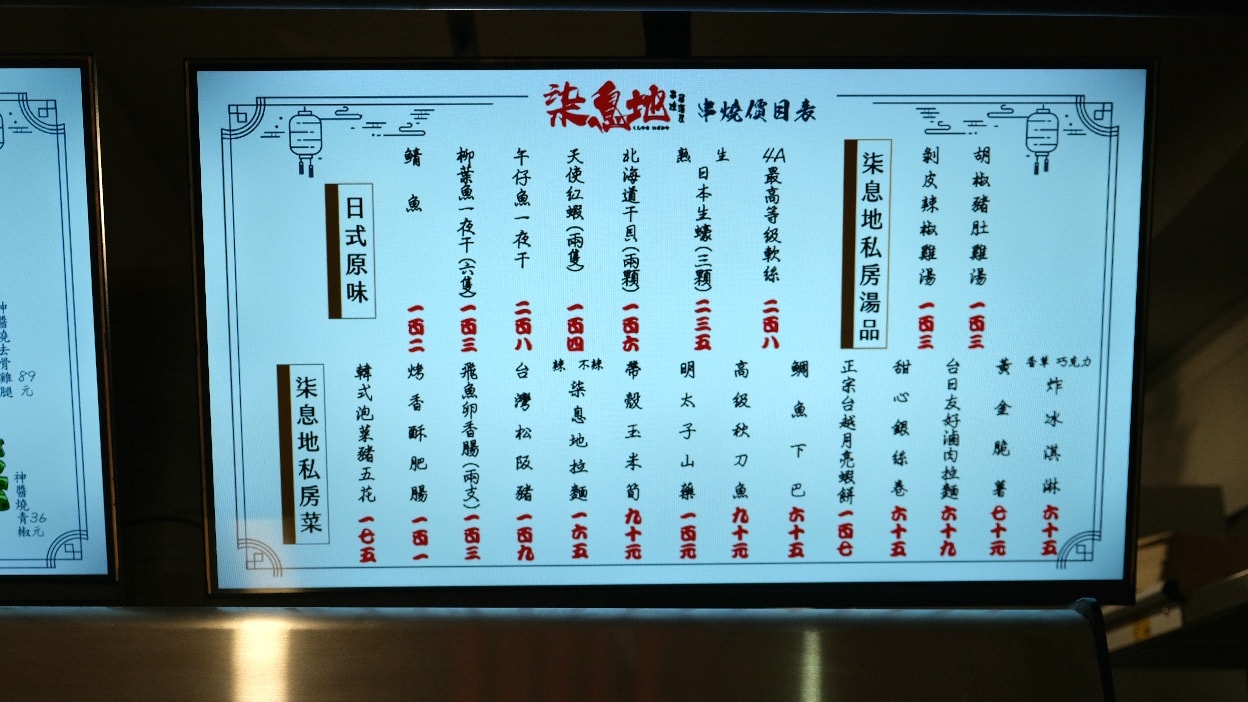 柒息地
串燒價目表
胡椒豬肚雞湯 一四三
剝皮辣椒雞湯 一四三
柒息地私房湯品
4A最高等級軟絲 二四八
生 熟
日本生蠔(三顆) 二三五
北海道干貝(兩顆) 一四六
天使紅蝦(兩隻) 一四四
午仔魚一夜干 二四八
柳葉魚一夜干(六隻) 一四三
鯖魚 一四二
日式原味
香草 巧克力
炸冰淇淋 六十五
黃金脆薯 七十元
台日友好滷肉拉麵 六十九
甜心銀絲卷 六十五
正宗台越月亮蝦餅 一四七
鯛魚下巴 六十五
高級秋刀魚 九十元
明太子山藥 一四元
帶殼玉米筍 九十元
辣 不辣
柒息地拉麵 一六五
台灣松阪豬 一四九
飛魚卵香腸(兩支) 一四三
烤香酥肥腸 一四一
韓式泡菜豬五花 一七五
柒息地私房菜
神醬燒去骨雞腿 89元
神醬燒青椒 36元